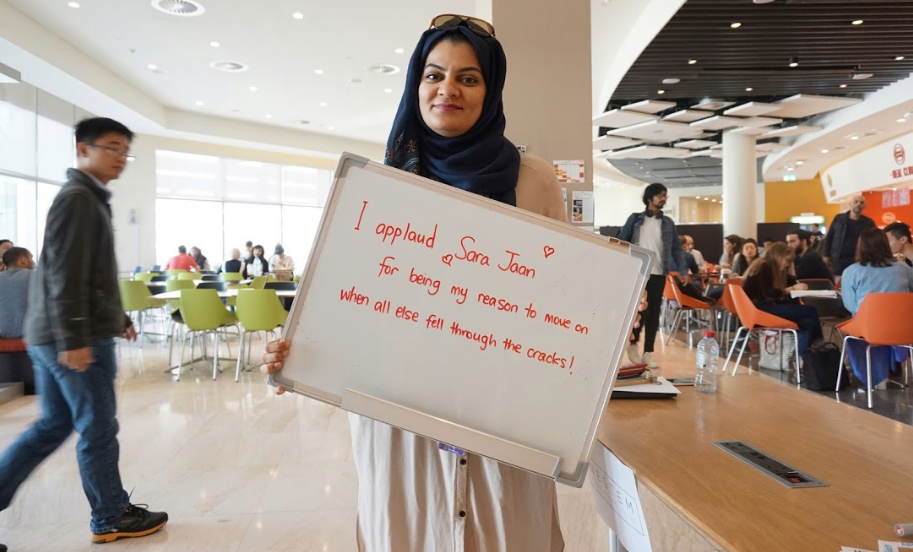 I applaud Sara Jaan
for being my reason to move on
when all else fell through the cracks!